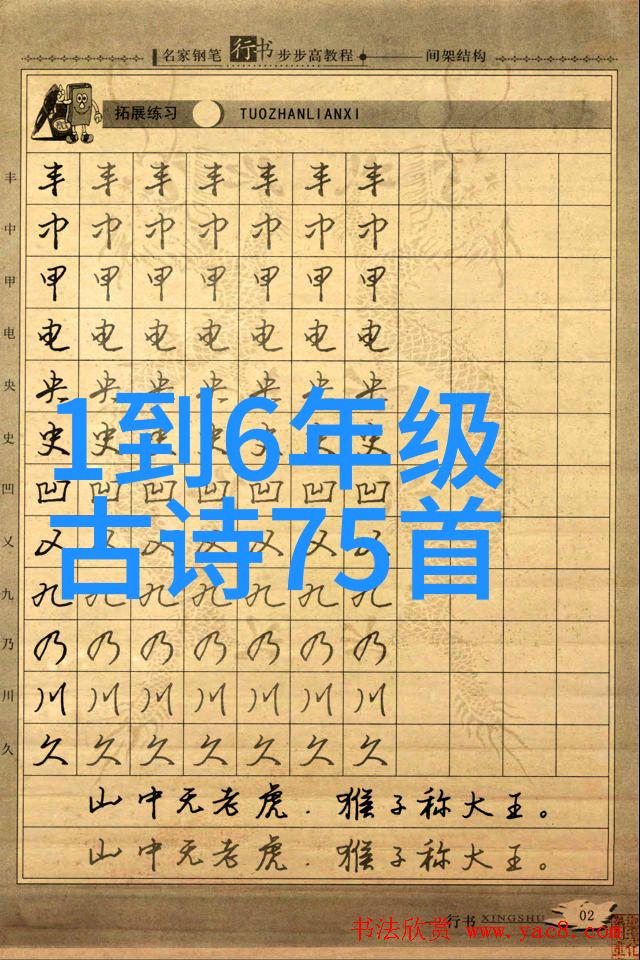 名家钢笔行书步步高教程 间架结构
拓展练习 TUOZHANLIANXI
丰 丰 丰 丰 丰 丰 丰 丰
中 中 中 中 中 中 中 中
甲 甲 甲 甲 甲 甲 甲 甲
电 电 电 电 电 电 电 电
央 央 央 央 央 央 央 央
1到6年级
史 史 史 史 史 史 史 史
凹 凹 凹 凹 凹 凹 凹 凹
乂 乂 乂 乂 乂 乂 乂 乂
古诗75首
九 九 九 九 九 九 九 九
乃 乃 乃 乃 乃 乃 乃 乃
川 川 川 川 川 川 川 川
久 久 久 久 久 久 久 久
山中无老虎．猴子称大王。
山中无老虎．猴子称大王。
行书 XINGSHU 02
书法欣赏 www.yac8.com